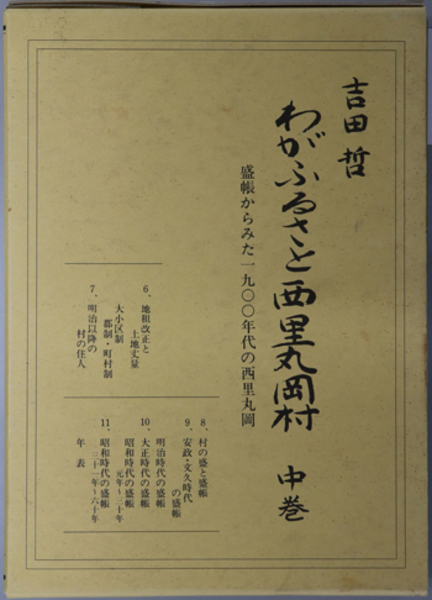 吉田 哲
わがふるさと西里丸岡村 中巻
盛帳からみた一九〇〇年代の西里丸岡
6、地租改正と
土地丈量
大小区制
郡制・町村制
7、明治以降の
村の住人
8、村の盛と盛帳
9、安政・文久時代
の盛帳
明治時代の盛帳
10、大正時代の盛帳
昭和時代の盛帳
元年〜二十年
11、昭和時代の盛帳
二十一年〜六十年
年表